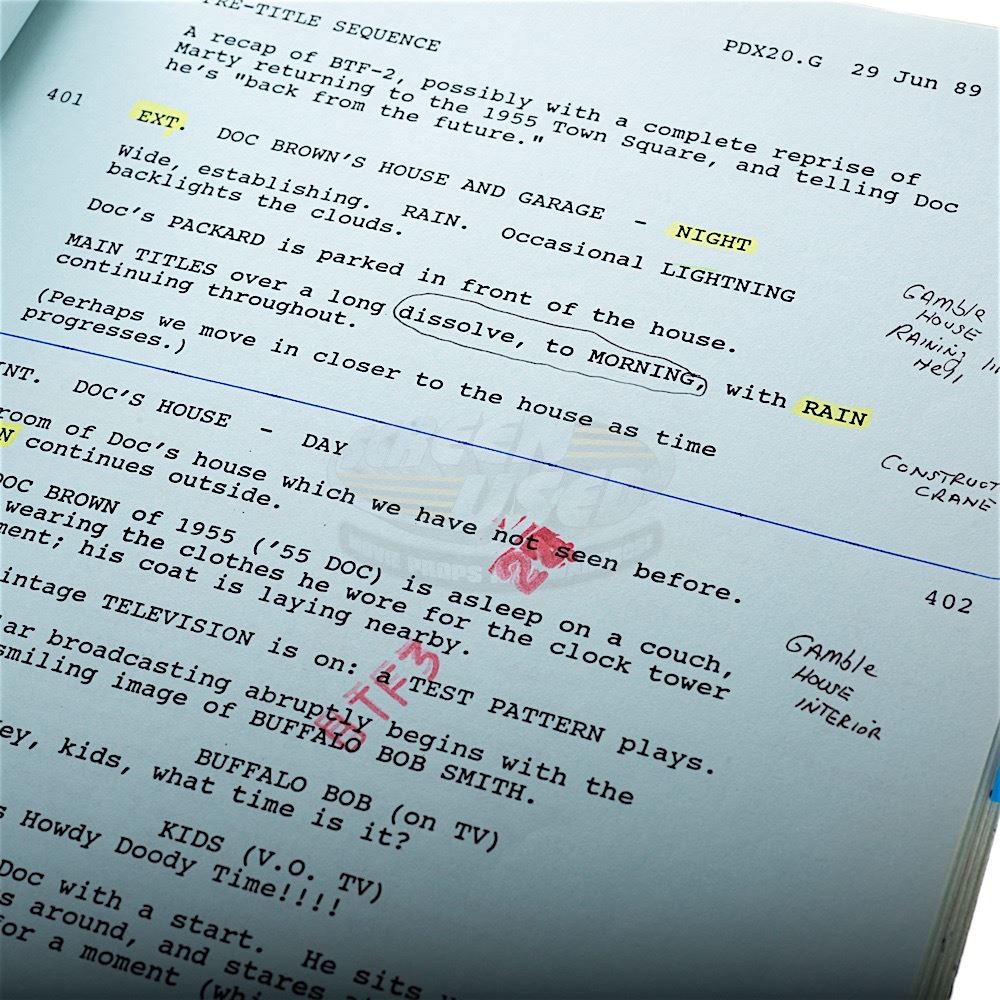 PRE-TITLE SEQUENCE
PDX20.G 29 Jun 89
A recap of BTF-2, possibly with a complete reprise of
Marty returning to the 1955 Town Square, and telling Doc
he's "back from the future."
401
EXT. DOC BROWN'S HOUSE AND GARAGE - NIGHT
Wide, establishing. RAIN. Occasional LIGHTNING
backlights the clouds.
Doc's PACKARD is parked in front of the house.
MAIN TITLES over a long dissolve, to MORNING, with RAIN
continuing throughout.
(Perhaps we move in closer to the house as time
progresses.)
GAMBLE
HOUSE
RAINING
HELL
CONSTRUCT
CRANE
INT. DOC'S HOUSE - DAY
402
room of Doc's house which we have not seen before.
N continues outside.
DOC BROWN of 1955 ('55 DOC) is asleep on a couch,
wearing the clothes he wore for the clock tower
ment; his coat is laying nearby.
GAMBLE
HOUSE
INTERIOR
intage TELEVISION is on: a TEST PATTERN plays.
lar broadcasting abruptly begins with the
smiling image of BUFFALO BOB SMITH.
BUFFALO BOB (on TV)
ey, kids, what time is it?
KIDS (V.O. TV)
s Howdy Doody Time!!!!
Doc with a start. He sits
s around, and stares
for a moment
BTF3
SCREEN
USED